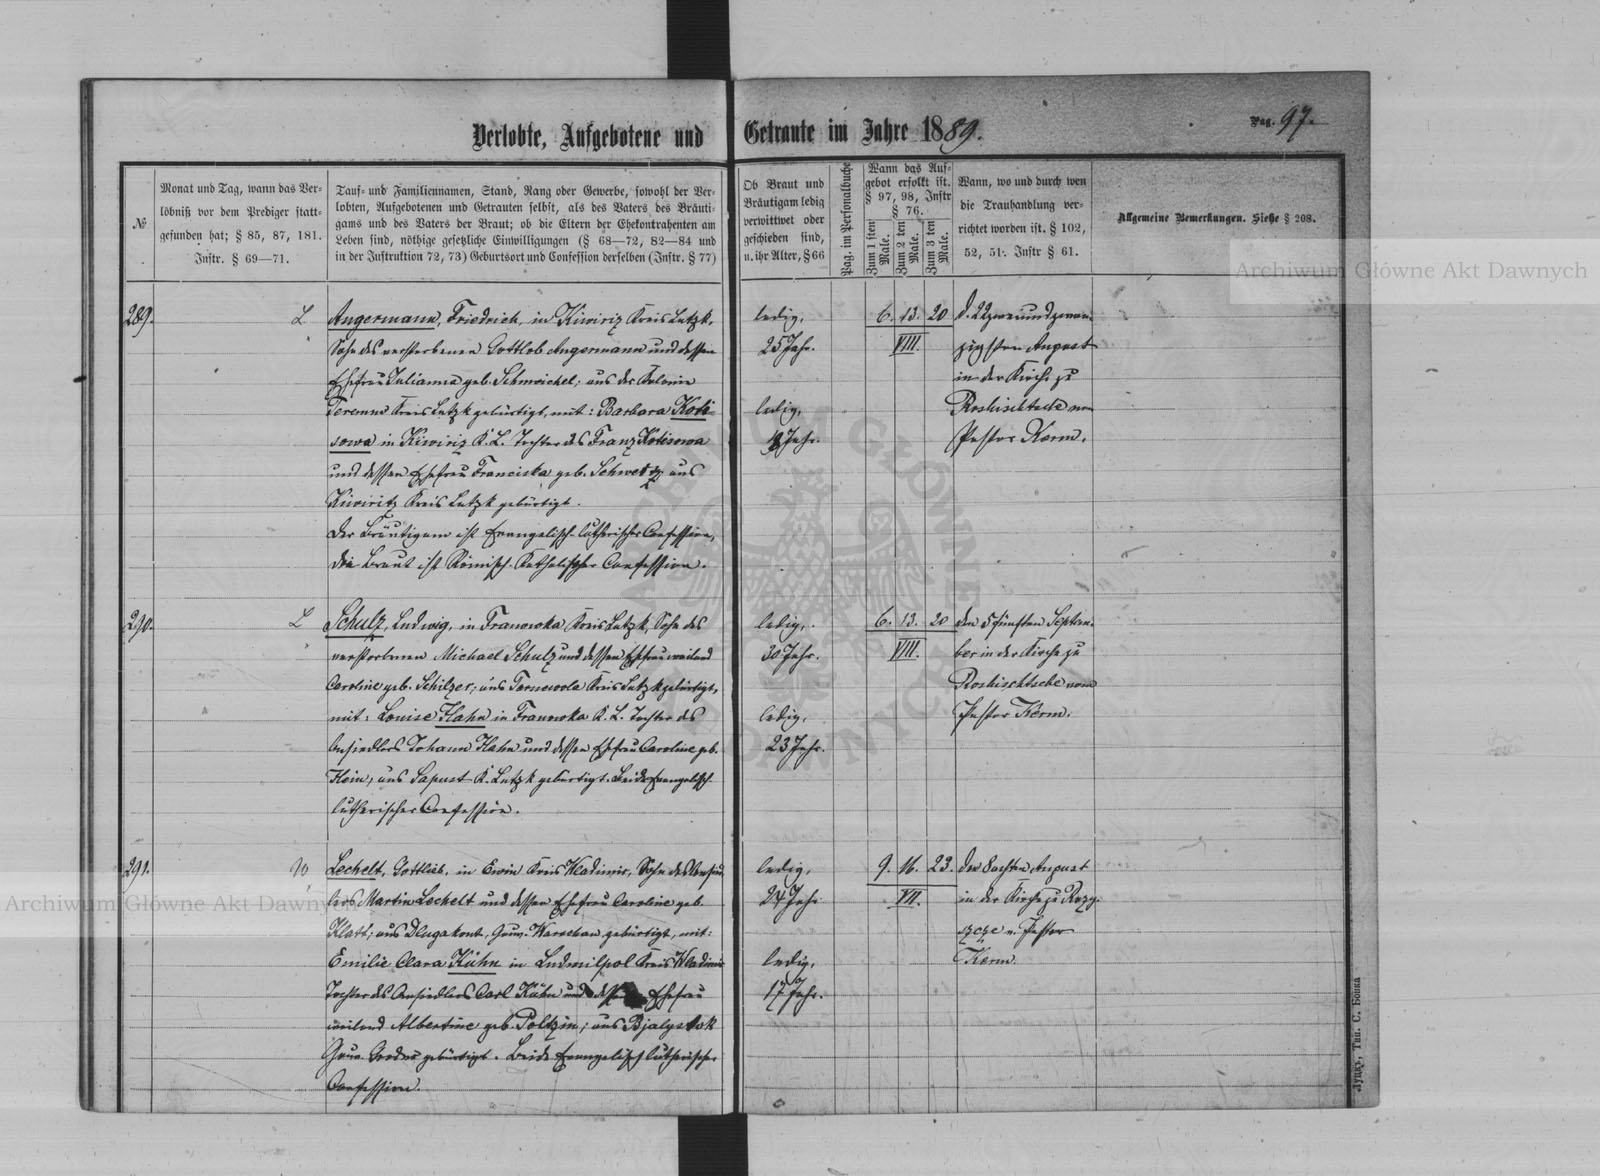 Verlobte, Aufgebotene und Getraute im Jahre 1889.
Pag. 97.
№
Monat und Tag, wann das Ver-
löbniß vor dem Prediger statt-
gefunden hat; § 85, 87, 181.
Instr. § 69—71.
Tauf- und Familiennamen, Stand, Rang oder Gewerbe, sowohl der Ver-
lobten, Aufgebotenen und Getrauten selbst, als des Vaters des Bräuti-
gams und des Vaters der Braut; ob die Eltern der Ehekontrahenten am
Leben sind, nöthige gesetzliche Einwilligungen (§ 68—72, 82—84 und
in der Instruktion 72, 73) Geburtsort und Confession derselben (Instr. § 77)
Ob Braut und
Bräutigam ledig
verwittwet oder
geschieden sind,
u. ihr Alter, § 66
Pag. im Personalbuche
Wann das Auf-
gebot erfolkt ist.
§ 97, 98, Instr
§ 76.
Zum 1 sten Male.
Zum 2 ten Male.
Zum 3 ten Male.
Wann, wo und durch wen
die Trauhandlung ver-
richtet worden ist. § 102,
52, 51. Instr § 61.
Allgemeine Bemerkungen. Siehe § 208.
Archiwum Główne Akt Dawnych
289.
L
Angermann, Friedrich, in Kiwiriz Kreis Lutzk,
Sohn des verstorbenen Gottlob Angermann und dessen
Ehefrau Julianna geb. Schmeichel; aus der Kolonie
Teremno Kreis Lutzk gebürtigt, mit: Barbara Koti-
sowa in Kiwiriz K. L. Tochter des Franz Kotisowa
und dessen Ehefrau Franciska geb. aus
Kiwiritz Kreis Lutzk gebürtigt.
Der Bräutigam ist Evangelisch-lutherischer Confession,
die Braut ist Römisch-Katholischer Confession.
ledig,
25 Jahr.
ledig,
Jahr.
6. 13. 20
VIII.
d. 22 zweiundzwan-
zigsten August
in der Kirche zu
Roshischtsche vom
Pastor Kerm.
290.
L
Schulz, Ludwig, in Franowka Kreis Lutzk, Sohn des
verstorbenen Michael Schulz und dessen Ehefrau weiland
Caroline geb. Schilzer; aus Kreis Lutzk gebürtigt,
mit: Louise Hahn in Franowka K. L. Tochter des
Ansiedlers Johann Hahn und dessen Ehefrau Caroline geb.
Klein, aus Sapust K. Lutzk gebürtigt. Beide Evangelisch
lutherischer Confession.
ledig,
30 Jahr.
ledig,
23 Jahr.
6. 13. 20
VIII.
den 5 fünften Septem-
ber in der Kirche zu
Roshischtsche vom
Pastor Kerm.
291.
W
Lechelt, Gottlieb, in Erwin Kreis Wladimir, Sohn des Ansied-
lers Martin Lechelt und dessen Ehefrau Caroline geb.
Klatt; aus Dlugakont, Gouv. Warschau gebürtigt, mit:
Emilie Clara Kühn in Ludmilpol Kreis Wladimir
Tochter des Ansiedlers Carl Kühn und dessen Ehefrau
weiland Albertine geb. Poltzin; aus Bjalystok
Gouv. Grodno gebürtigt. Beide Evangelisch lutherischer
Confession.
ledig,
24 Jahr
ledig,
17 Jahr.
9. 16. 23.
VII.
den August
in der Kirche zu Rozy-
szcze v. Pastor
Kerm.
Archiwum Główne Akt Dawnych
Луцкъ, Тип. С. Бонка